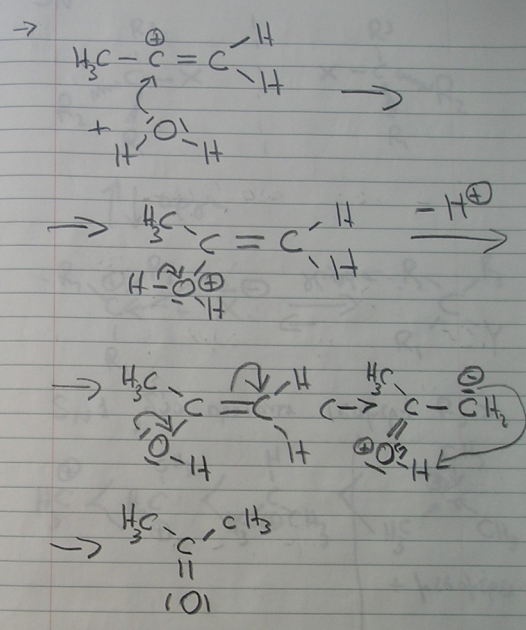 → H₃C – C⊕ = C H H
+ H O H →
→ H₃C C = C H H – H⊕ →
H – O⊕ H
→ H₃C C = C H H ⟷ H₃C C – C⊖ H₂
O – H ⊕O – H
→ H₃C C CH₃
||
|O|